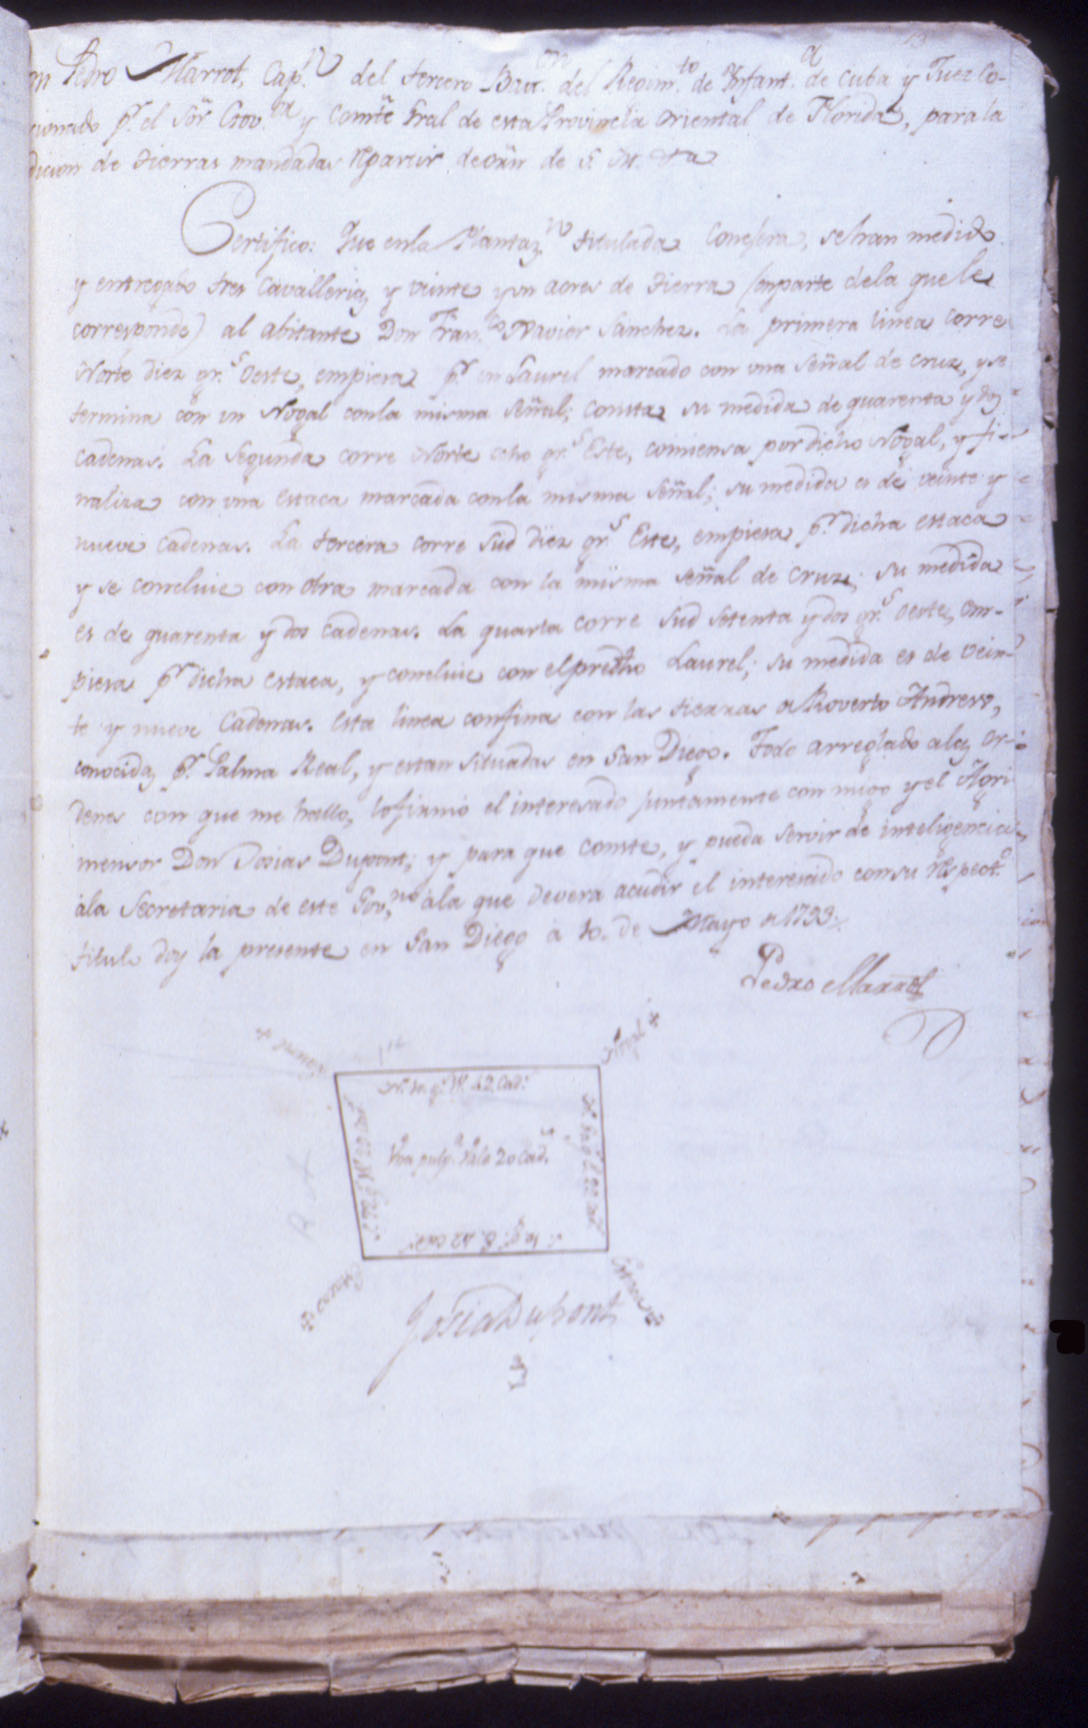 Pedro Marrot, Cap.n del tercero Bat.on del Regim.to de Infant.a de Cuba y Juez Co-
cionado p.r el Sör Gov.or y Comte Gral de esta Provincia Oriental de Florida, para la
dicion de tierras mandadas repartir de orñ de S. M. &a
Certifico: Que en la Plantaz.n titulada Conesera, se han medido
y entregado tres Cavallerias, y veinte y un acres de tierra (en parte de la que le
corresponde) al abitante Don Fran.co Xavier Sanchez. La primera linea corre
Norte diez gr.s Oeste, empiesa p.r un Laurel marcado con una señal de cruz, y se
termina con un Nogal con la misma señal; consta su medida de quarenta y dos
cadenas. La segunda corre Norte ocho gr.s Este, comiensa por dicho Nogal, y fi-
naliza con una estaca marcada con la misma señal; su medida es de veinte y
nueve cadenas. La tercera corre Sud diez gr.s Este, empiesa p.r dicha estaca
y se concluie con otra marcada con la misma señal de cruz; su medida
es de quarenta y dos cadenas. La quarta corre Sud setenta y dos gr.s Oeste, em-
piesa p.r dicha estaca, y concluie con el predho Laurel; su medida es de vein-
te y nueve Cadenas. Esta linea confina con las tierras de Roverto Andrews,
conocidas p.r Palma Real, y estan situadas en San Diego. Todo arreglado a las or-
denes con que me hallo, lo firmó el interesado juntamente con migo y el Agri-
mensor Don Josias Dupont; y para que conste, y pueda servir de inteligencia
à la Secretaria de este Gov.no à la que devera acudir el interesado con su respect.o
titulo doy la presente en San Diego à 10. de Mayo de 1793.
Pedro Marrot
Laurel
1ra
Nogal
N. 10. g.s W. 42. Cad.s
Una pulg.a vale 20 Cad.s
S. 10 g.s E. 42 Cad.s
Estaca
Estaca
Josia Dupont